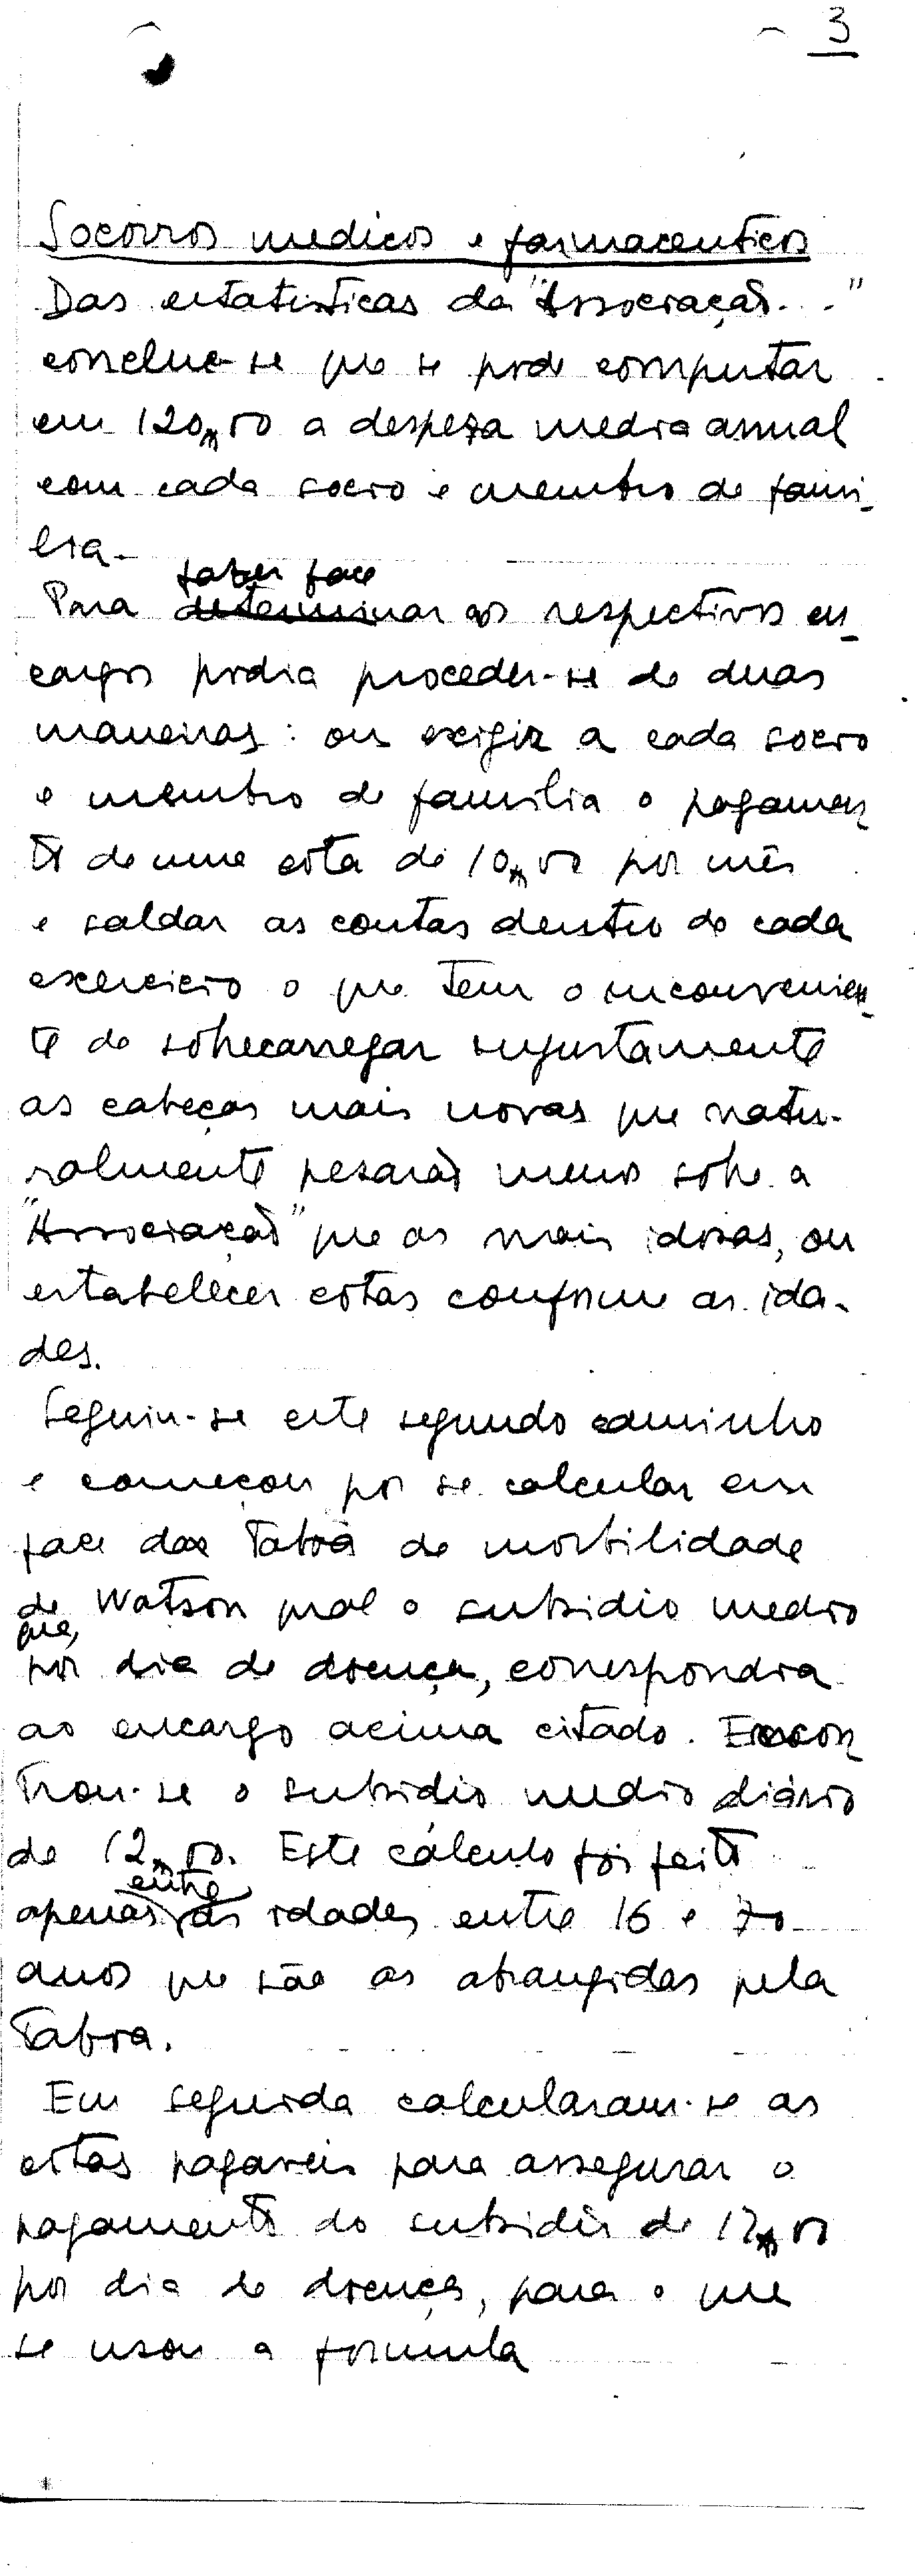 3
Socorros medicos e farmaceuticos
Das estatisticas da "Associação..."
conclue-se que se pode computar
em 120$00 a despeza media anual
com cada socio e membro de fami-
lia.
fazer face
Para determinar aos respectivos en-
cargos podia proceder-se de duas
maneiras: ou exigir a cada socio
e membro de família o pagamen
to de uma cota de 10$00 por mês
e saldar as contas dentro de cada
exercicio o que tem o inconvenien-
te de sobrecarregar injustamente
as cabeças mais novas que natu-
ralmente pesarão menos sobre a
"Associação" que as mais idosas, ou
estabelecer cotas conforme as ida-
des.
Seguiu-se este segundo caminho
e começou por se calcular em
face da Taboa de morbilidade
de Watson qual o subsidio medio
que,
por dia de doença, correspondia
ao encargo acima citado. Encon
trou-se o subsidio medio diário
de 12$00. Este cálculo foi feito
entre
apenas as idades entre 16 e 70
anos que são as abrangidas pela
Taboa.
Em seguida calcularam-se as
cotas pagaveis para assegurar o
pagamento do subsidio de 12$00
por dia de doença, para o que
se usou a formula